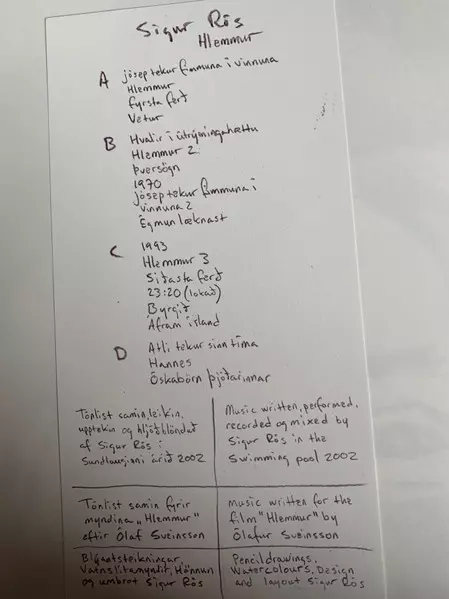 Sigur Rôs
Hlemmur
A jósep tekur fimmuna í vinnuna
Hlemmur
Fyrsta ferð
Vetur
B Hvalir í útrýmingahættu
Hlemmur 2
Þversögn
1970
Jósep tekur fimmuna í
vinnuna 2
Êg mun læknast
C 1993
Hlemmur 3
Síðasta ferð
23:20 (lokað)
Byrgið
Áfram ísland
D Atli tekur sinn tíma
Hannes
Óskabörn þjóðarinnar
Tônlist samin, leikin,
upptekin og hljóðblönduð
af Sigur Rôs í
Sundlauginni árið 2002
Music written, performed,
recorded og mixed by
Sigur Rôs in the
Swimming pool 2002
Tônlist samin fyrir
myndina „Hlemmur"
eftir Ôlaf Sveinsson
music written for the
film "Hlemmur" by
Ôlafur Sveinsson
Blýantsteikningar,
Vatnslitamyndir, Hönnun
og umbrot Sigur Rôs
Pencildrawings,
Watercolours, Design
and layout Sigur Rôs